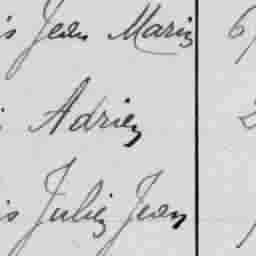 is Jean Marie 6
Adrien 2
is Julien Jean